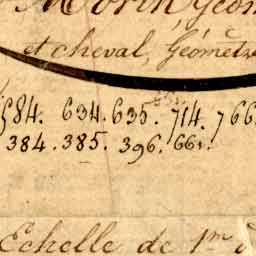 Morin, Géom
et cheval, Géomètre
584. 634. 635. 714. 766
384. 385. 396. 661.
Echelle de 1m